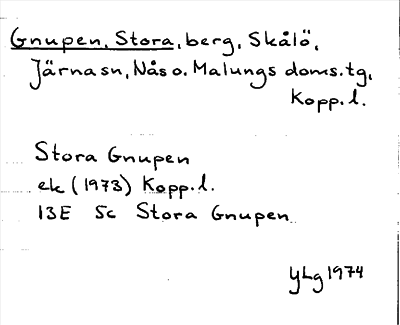 Gnupen, Stora, berg, Skålö,
Järnasn, Nås o. Malungs doms.tg,
Kopp. l.
Stora Gnupen
ek (1973) Kopp. l.
13E 5c Stora Gnupen
YLg 1974